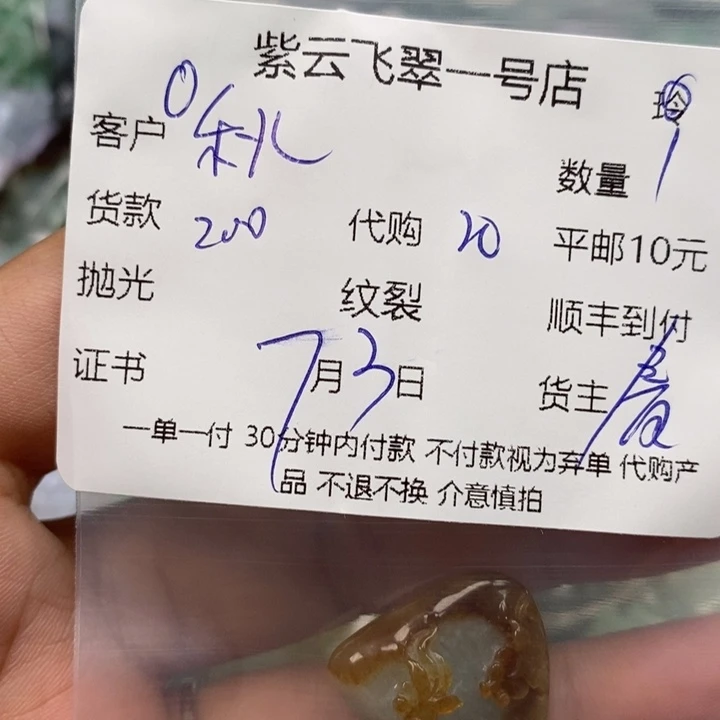 紫云飞翠一号店
客户
数量 1
货款 200 代购 20 平邮10元
抛光 纹裂 顺丰到付
证书 7月3日 货主
一单一付 30分钟内付款 不付款视为弃单 代购产
品 不退不换 介意慎拍